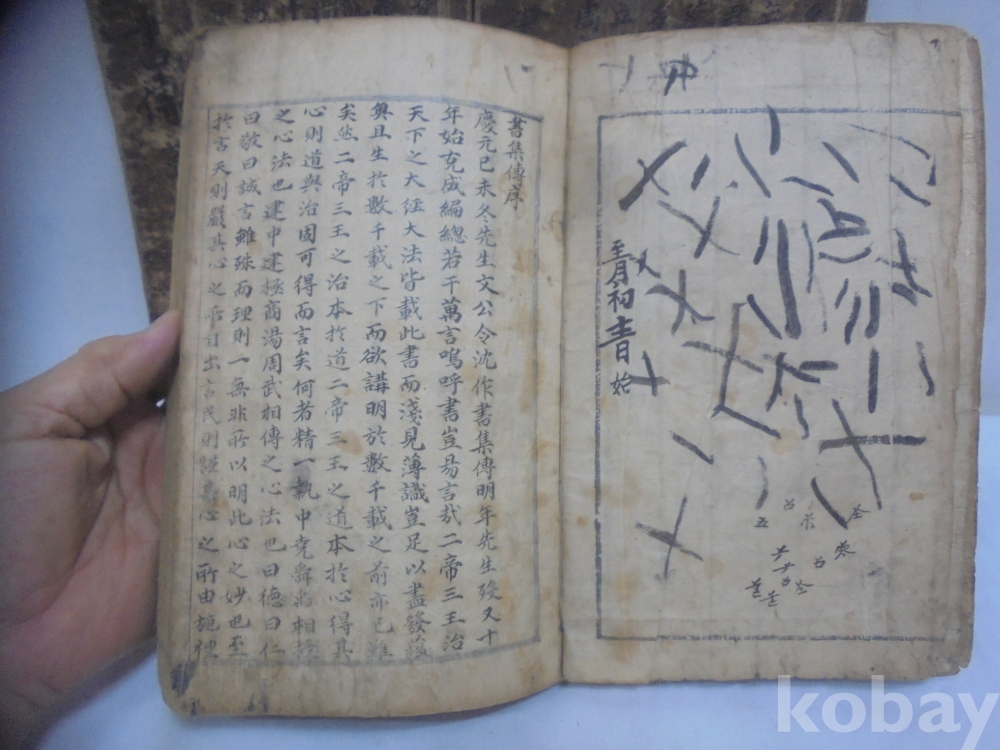 至月初
始
書集傳序
慶元已未冬先生文公令沈作書集傳明年先生歿又十
年始克成編總若干萬言嗚呼書豈易言哉二帝三王治
天下之大經大法皆載此書而淺見薄識豈足以盡發蘊
奧且生於數千載之下而欲講明於數千載之前亦已難
矣然二帝三王之治本於道二帝三王之道本於心得其
心則道與治固可得而言矣何者精一執中堯舜禹相授
之心法也建中建極商湯周武相傳之心法也曰德曰仁
曰敬曰誠言雖殊而理則一無非所以明此心之妙也至
於言天則嚴其心之所自出言民則謹其心之所由施禮
kobay